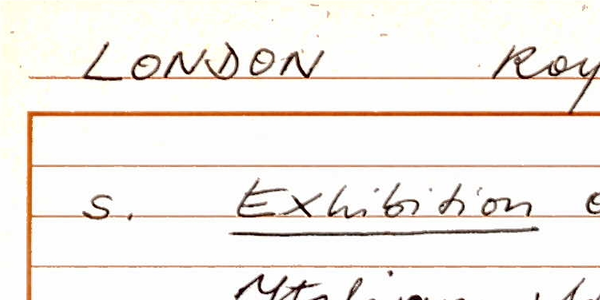 LONDON Roy
s. Exhibition